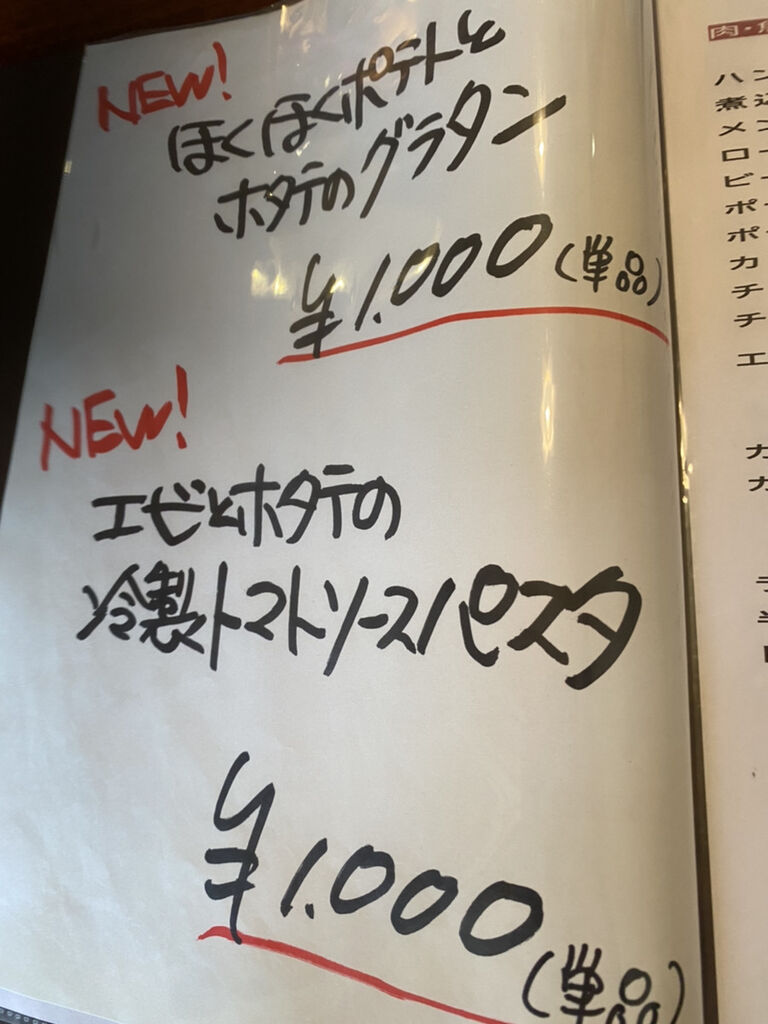 NEW!
ほくほくポテトと
ホタテのグラタン
¥1.000(単品)
NEW!
エビとホタテの
冷製トマトソースパスタ
¥1.000
(単品)
肉・
ハン
煮込
メン
ロー
ビー
ポー
ポー
カ
チ
チ
エ
カ
カ